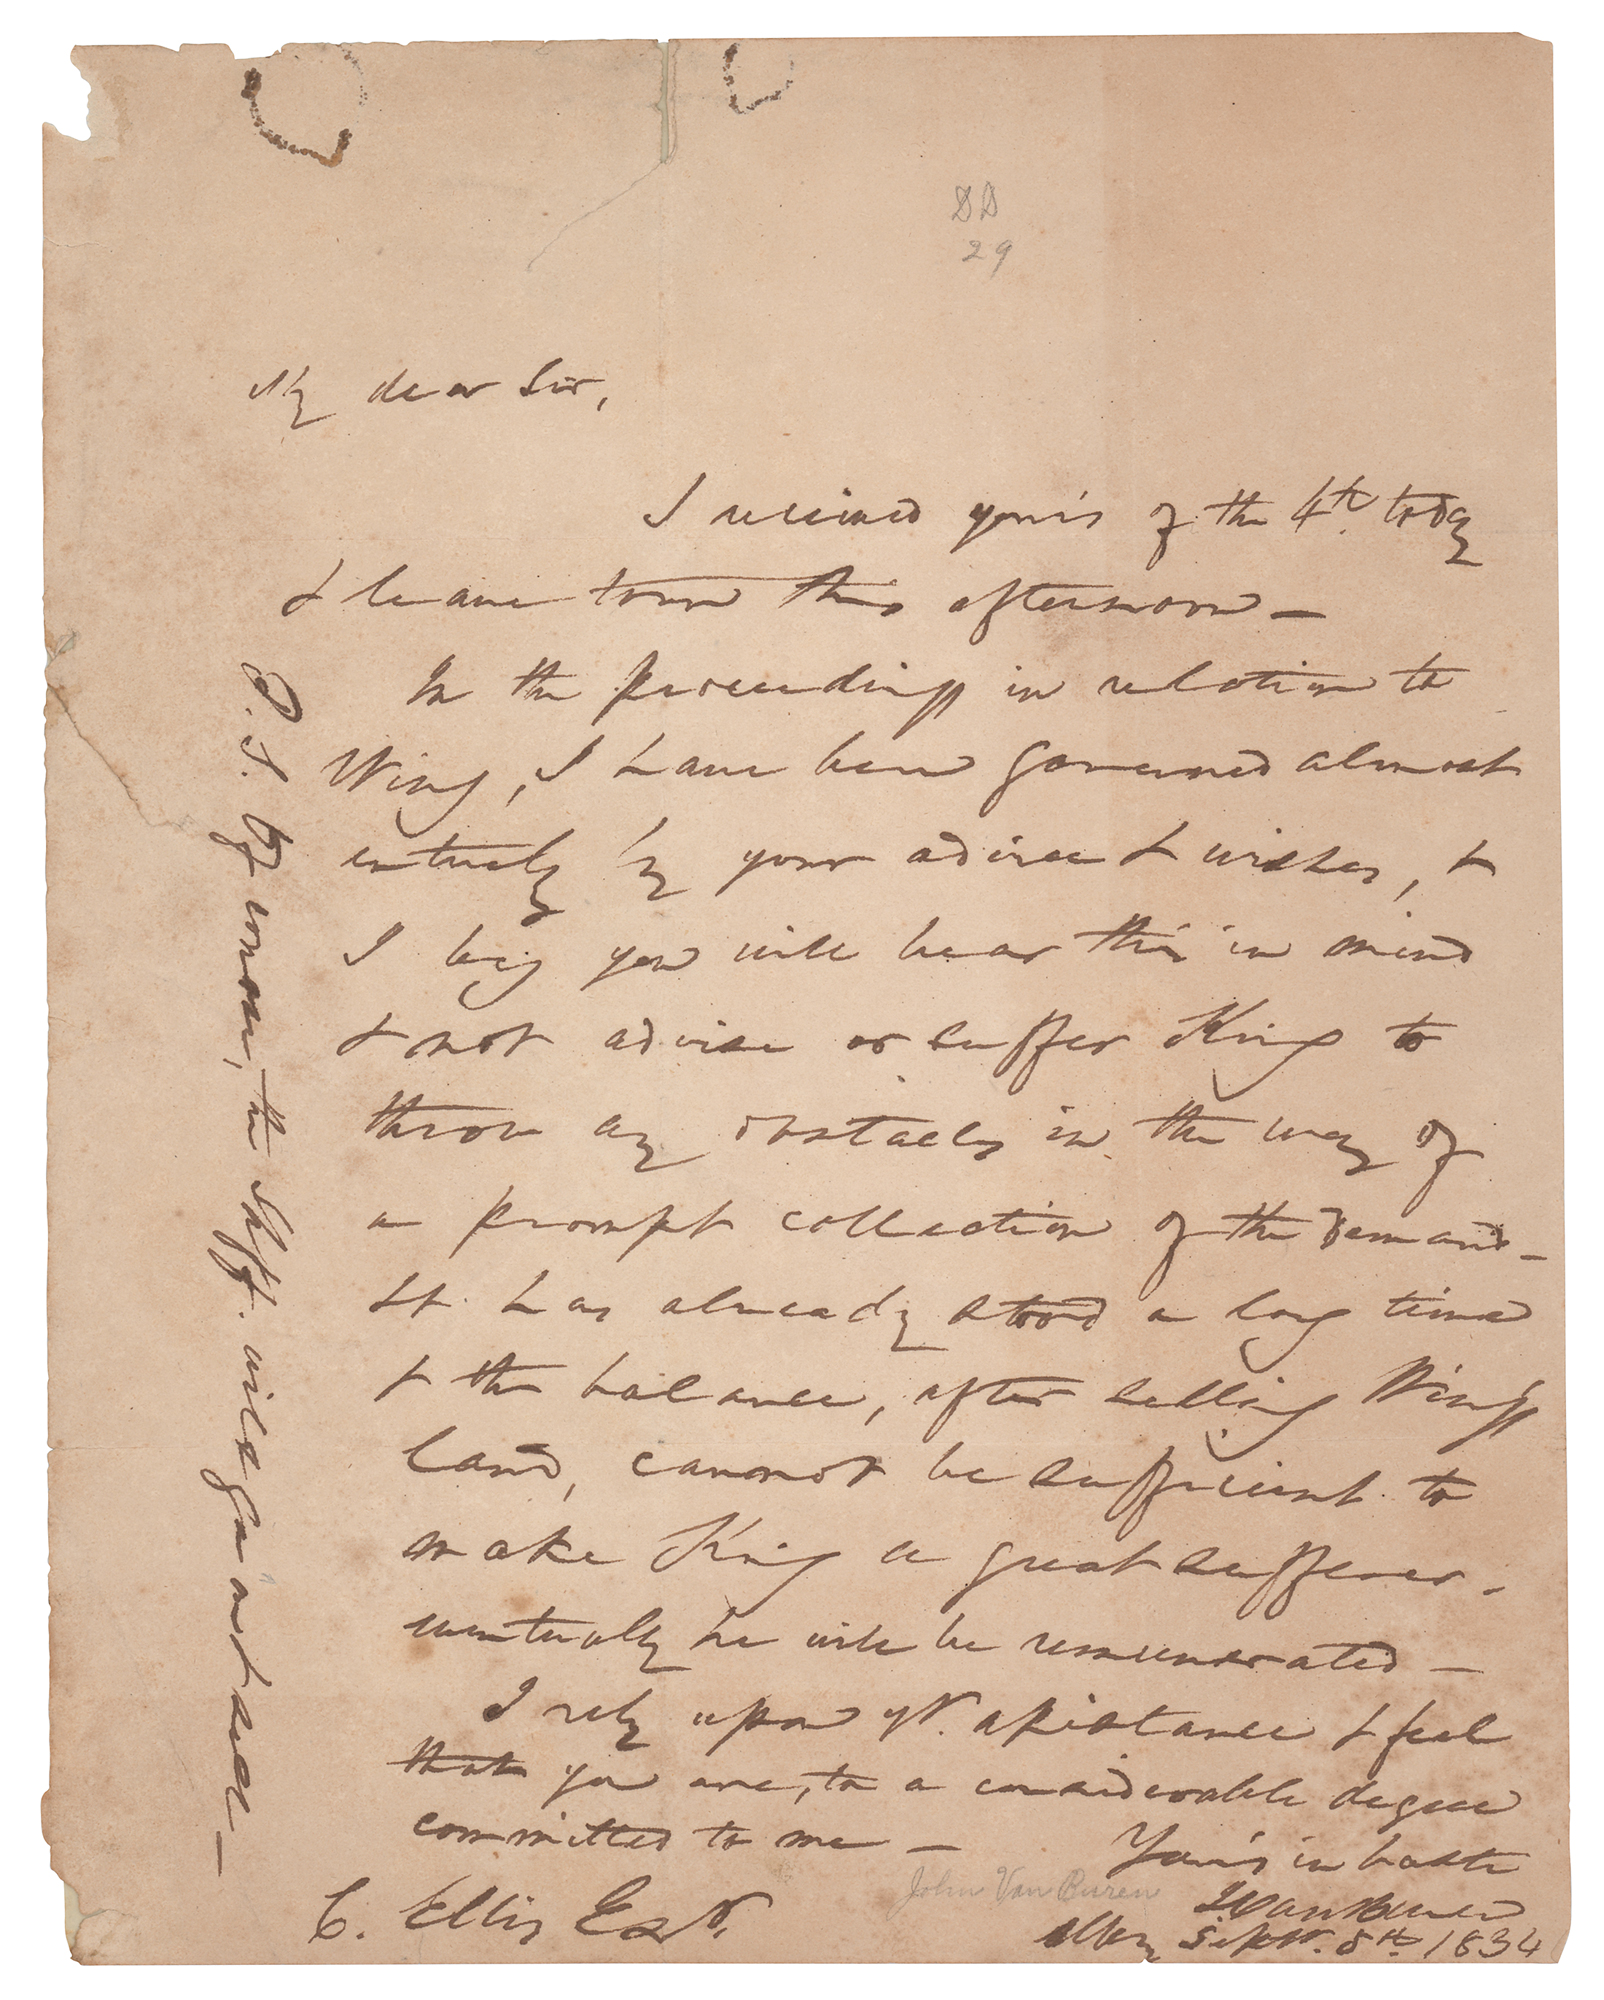 DD
29
My dear Sir,
I received your's of the 4th. today
& leave town this afternoon —
In the proceedings in relation to
Wing, I have been governed almost
entirely by your advice & wishes, &
I beg you will bear this in mind
& not advise or suffer King to
throw any obstacles in the way of
a prompt collection of the demand —
It has already stood a long time
& the balance, after selling Wing's
land, cannot be sufficient to
make King a great sufferer.
eventually he will be remunerated —
I rely upon yr. assistance & feel
that you are, to a considerable degree
committed to me —
Your's in haste
John Van Buren
JVanBuren
C. Ellis Esqr.
Albany Septr. 8th. 1834
P.S. Of course, the Shff. will go on & sell —